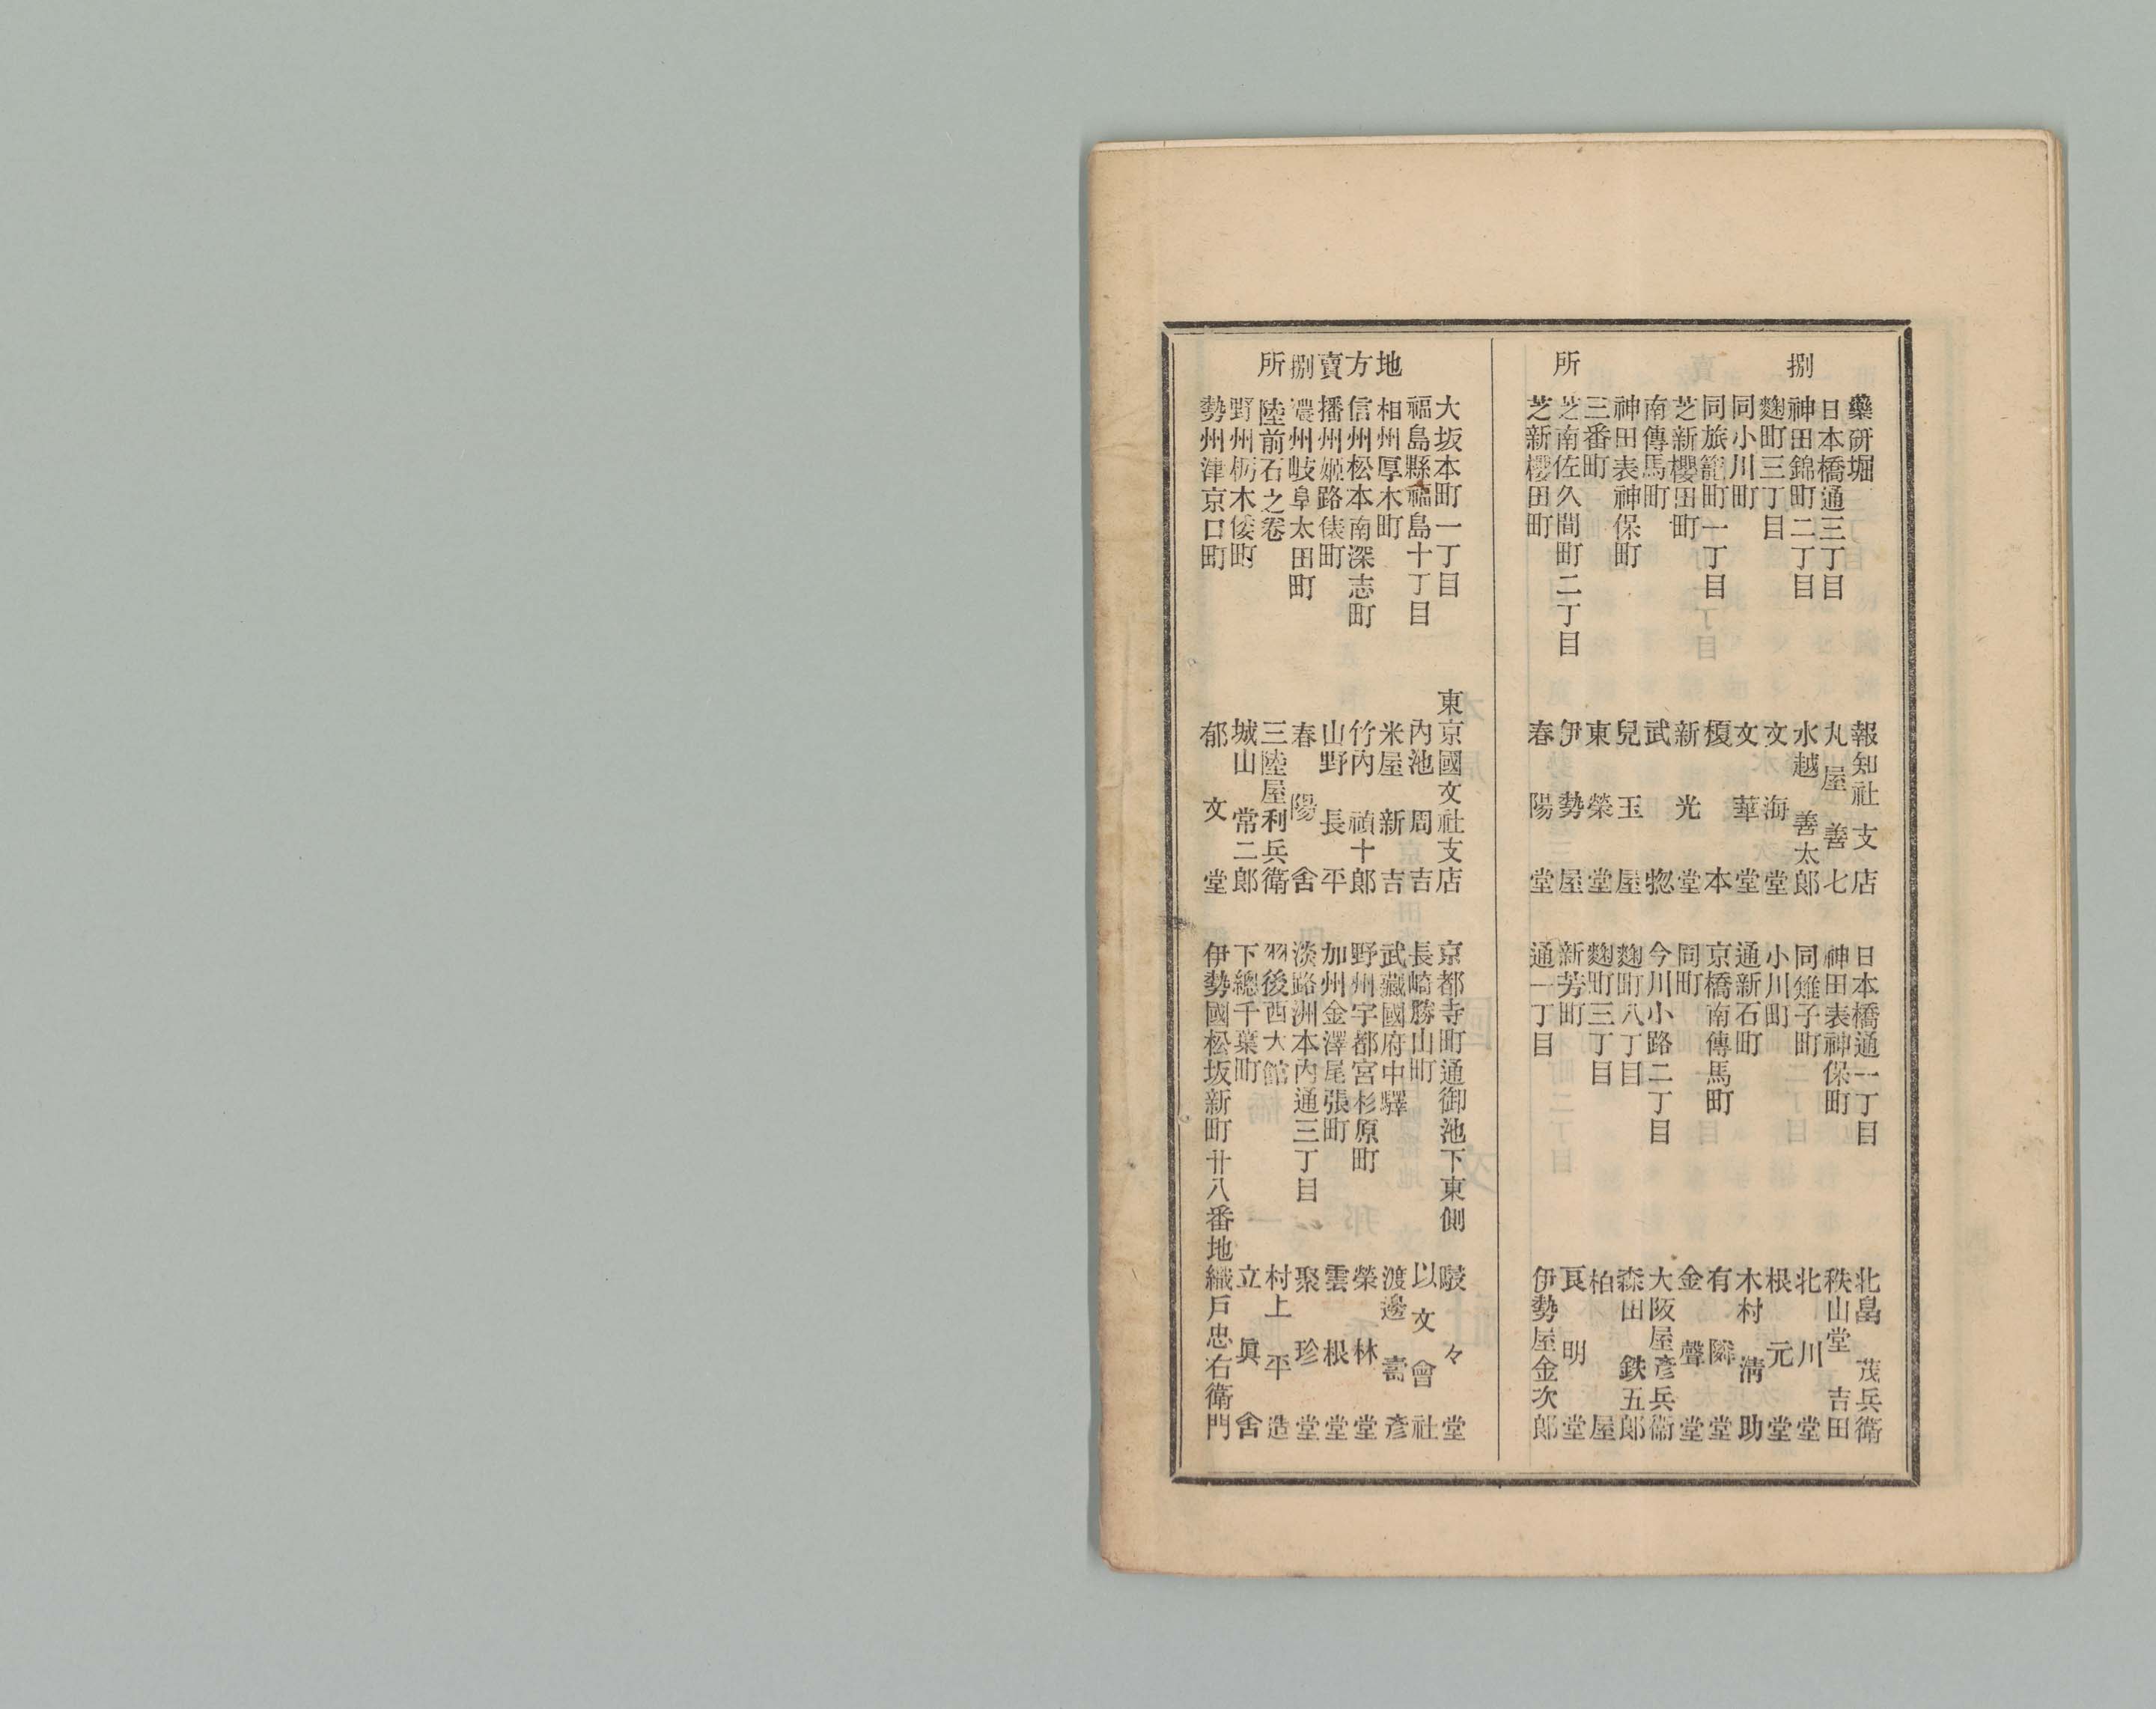 捌所
藥研堀 報知社支店
日本橋通三丁目 丸屋善七
神田錦町二丁目 水越善太郎
麴町三丁目 文海堂
同小川町 文華堂
同旅籠町一丁目 榎本
芝新櫻田町 新光堂
南傳馬町 武惣
神田表神保町 兒玉屋
三番町 東榮堂
芝南佐久間町二丁目 伊勢屋
芝新櫻田町 春陽堂
日本橋通一丁目 北畠茂兵衛
神田表神保町 秩山堂吉田
同雉子町 北川堂
小川町 根元堂
通新石町 木村淸助
京橋南傳馬町 有隣堂
同町 金聲堂
今川小路二丁目 大阪屋彥兵衞
麴町八丁目 森田鉄五郎
麴町三丁目 柏屋
新芳町 良明堂
通一丁目 伊勢屋金次郎
地方賣捌所
大坂本町一丁目 東京國文社支店
福島縣福島十丁目 內池周吉
相州厚木町 米屋新吉
信州松本南深志町 竹內禎十郎
播州姬路俵町 山野長平
濃州岐阜太田町 春陽舍
陸前石之卷 三陸屋利兵衛
野州栃木倭町 城山常二郎
勢州津京口町 郁文堂
京都寺町通御池下東側 駸々堂
長崎勝山町 以文會社
武藏國府中驛 渡邊壽彥
野州宇都宮杉原町 榮林堂
加州金澤尾張町 雲根堂
淡路洲本內通三丁目 聚珍堂
羽後西大館 村上平造
下總千葉町 立眞舍
伊勢國松坂新町廿八番地 織戶忠右衛門